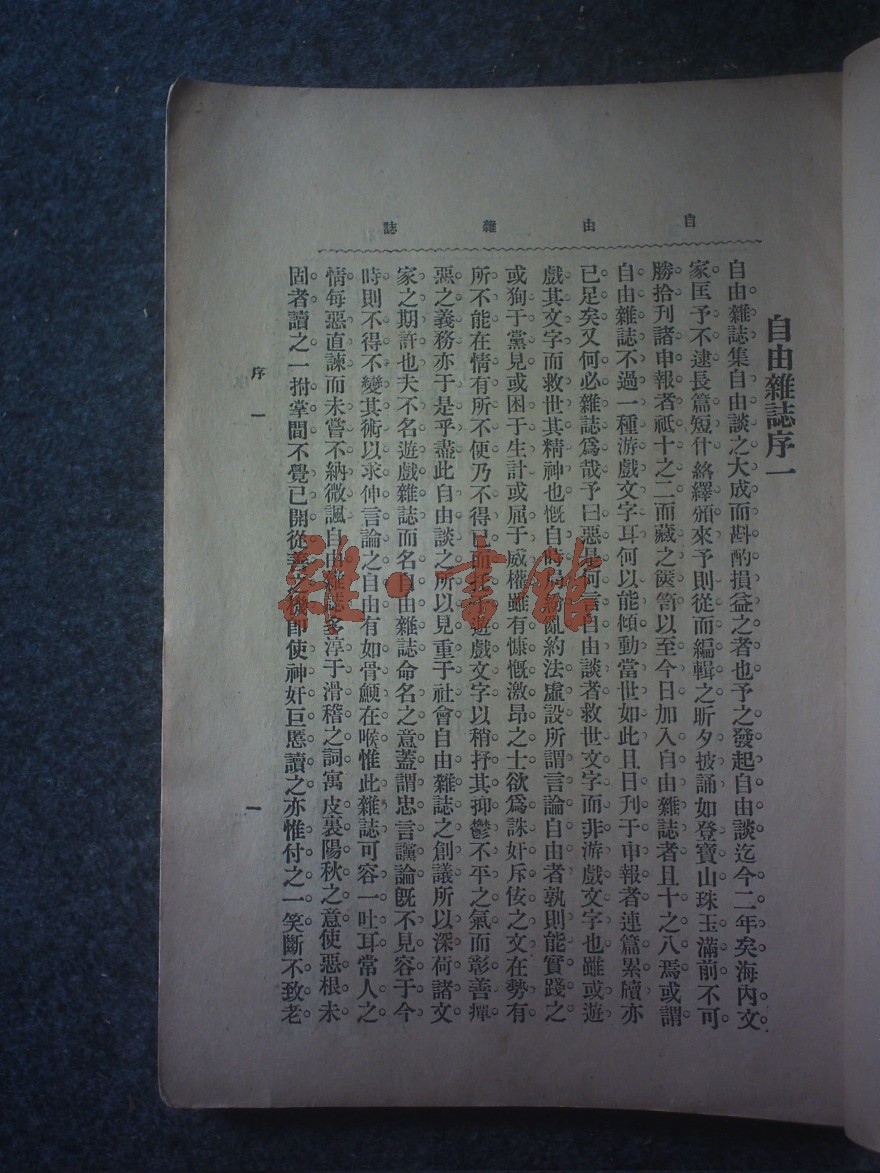 自由雜誌
自由雜誌序一
自由雜誌集自由談之大成而斟酌損益之者也予之發起自由談迄今二年矣海內文
家匡予不逮長篇短什絡繹頒來予則從而編輯之昕夕披誦如登寶山珠玉滿前不可
勝拾刊諸申報者祇十之二而藏之篋笥以至今日加入自由雜誌者且十之八焉或謂
自由雜誌不過一種游戲文字耳何以能傾動當世如此且日刊于申報者連篇累牘亦
已足矣又何必雜誌爲哉予曰惡是何言自由談者救世文字而非游戲文字也雖或遊
戲其文字而救世其精神也慨自時局紛亂約法虛設所謂言論自由者孰則能實踐之
或狥于黨見或困于生計或屈于威權雖有慷慨激昂之士欲爲誅奸斥佞之文在勢有
所不能在情有所不便乃不得已而托遊戲文字以稍抒其抑鬱不平之氣而彰善癉
惡之義務亦于是乎盡此自由談之所以見重于社會自由雜誌之創議所以深荷諸文
家之期許也夫不名遊戲雜誌而名自由雜誌命名之意蓋謂忠言讜論既不見容于今
時則不得不變其術以求伸言論之自由有如骨鯁在喉惟此雜誌可容一吐耳常人之
情每惡直諫而未嘗不納微諷自由雜誌多淳于滑稽之詞寓皮裏陽秋之意使惡根未
固者讀之一拊掌間不覺已開從善之機即使神奸巨慝讀之亦惟付之一笑斷不致老
序一
一
雜·書館